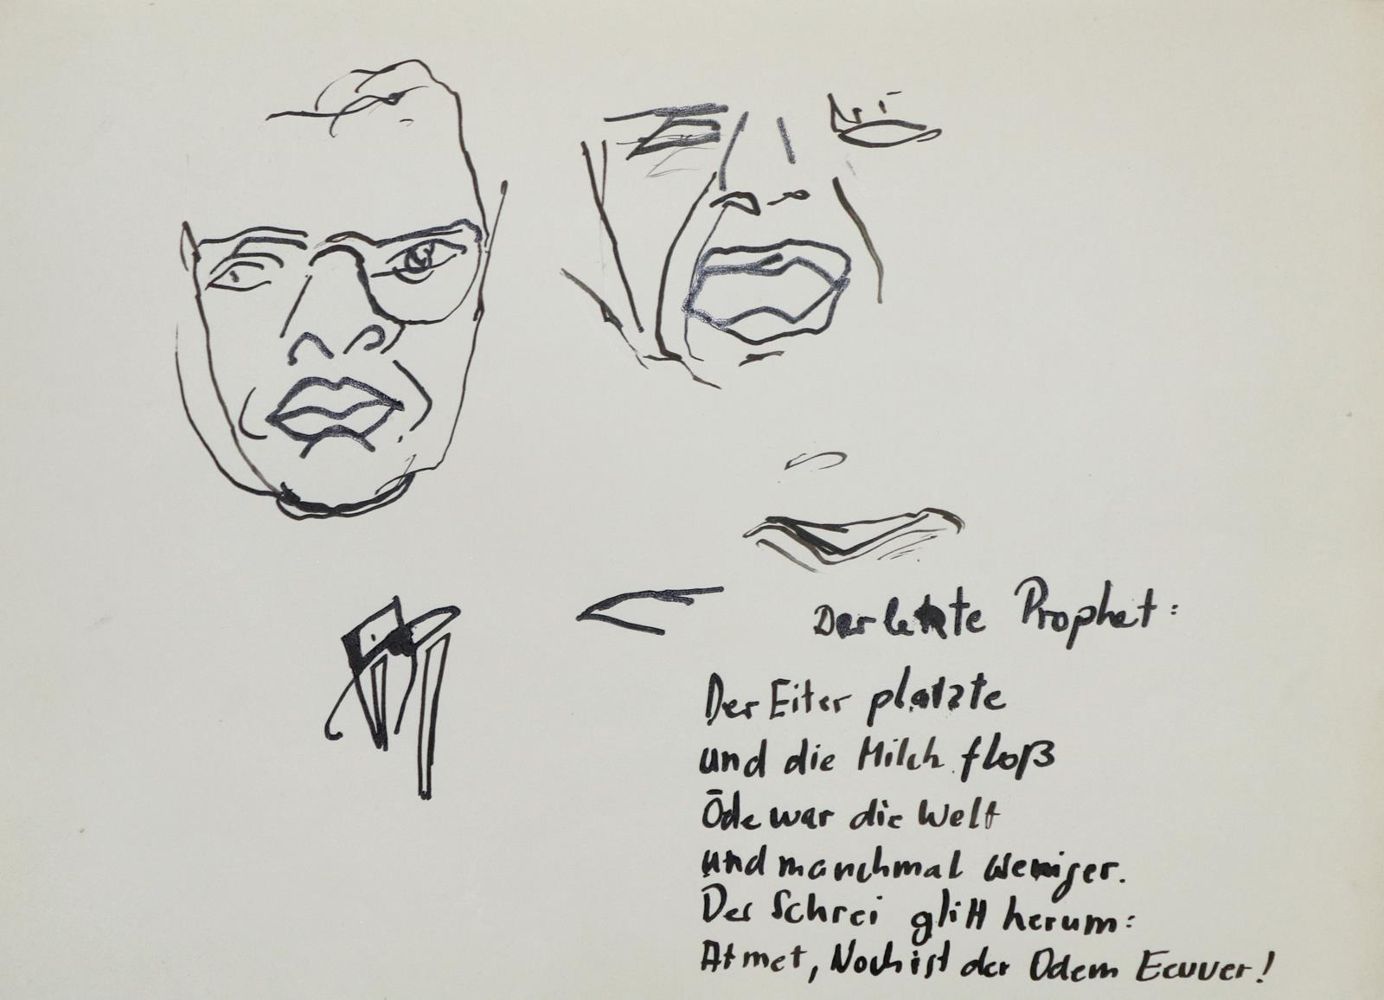 Der letzte Prophet:
Der Eiter platzte
und die Milch floß
Öde war die Welt
und manchmal weniger.
Der Schrei glitt herum:
Atmet, Noch ist der Odem Eeuer!